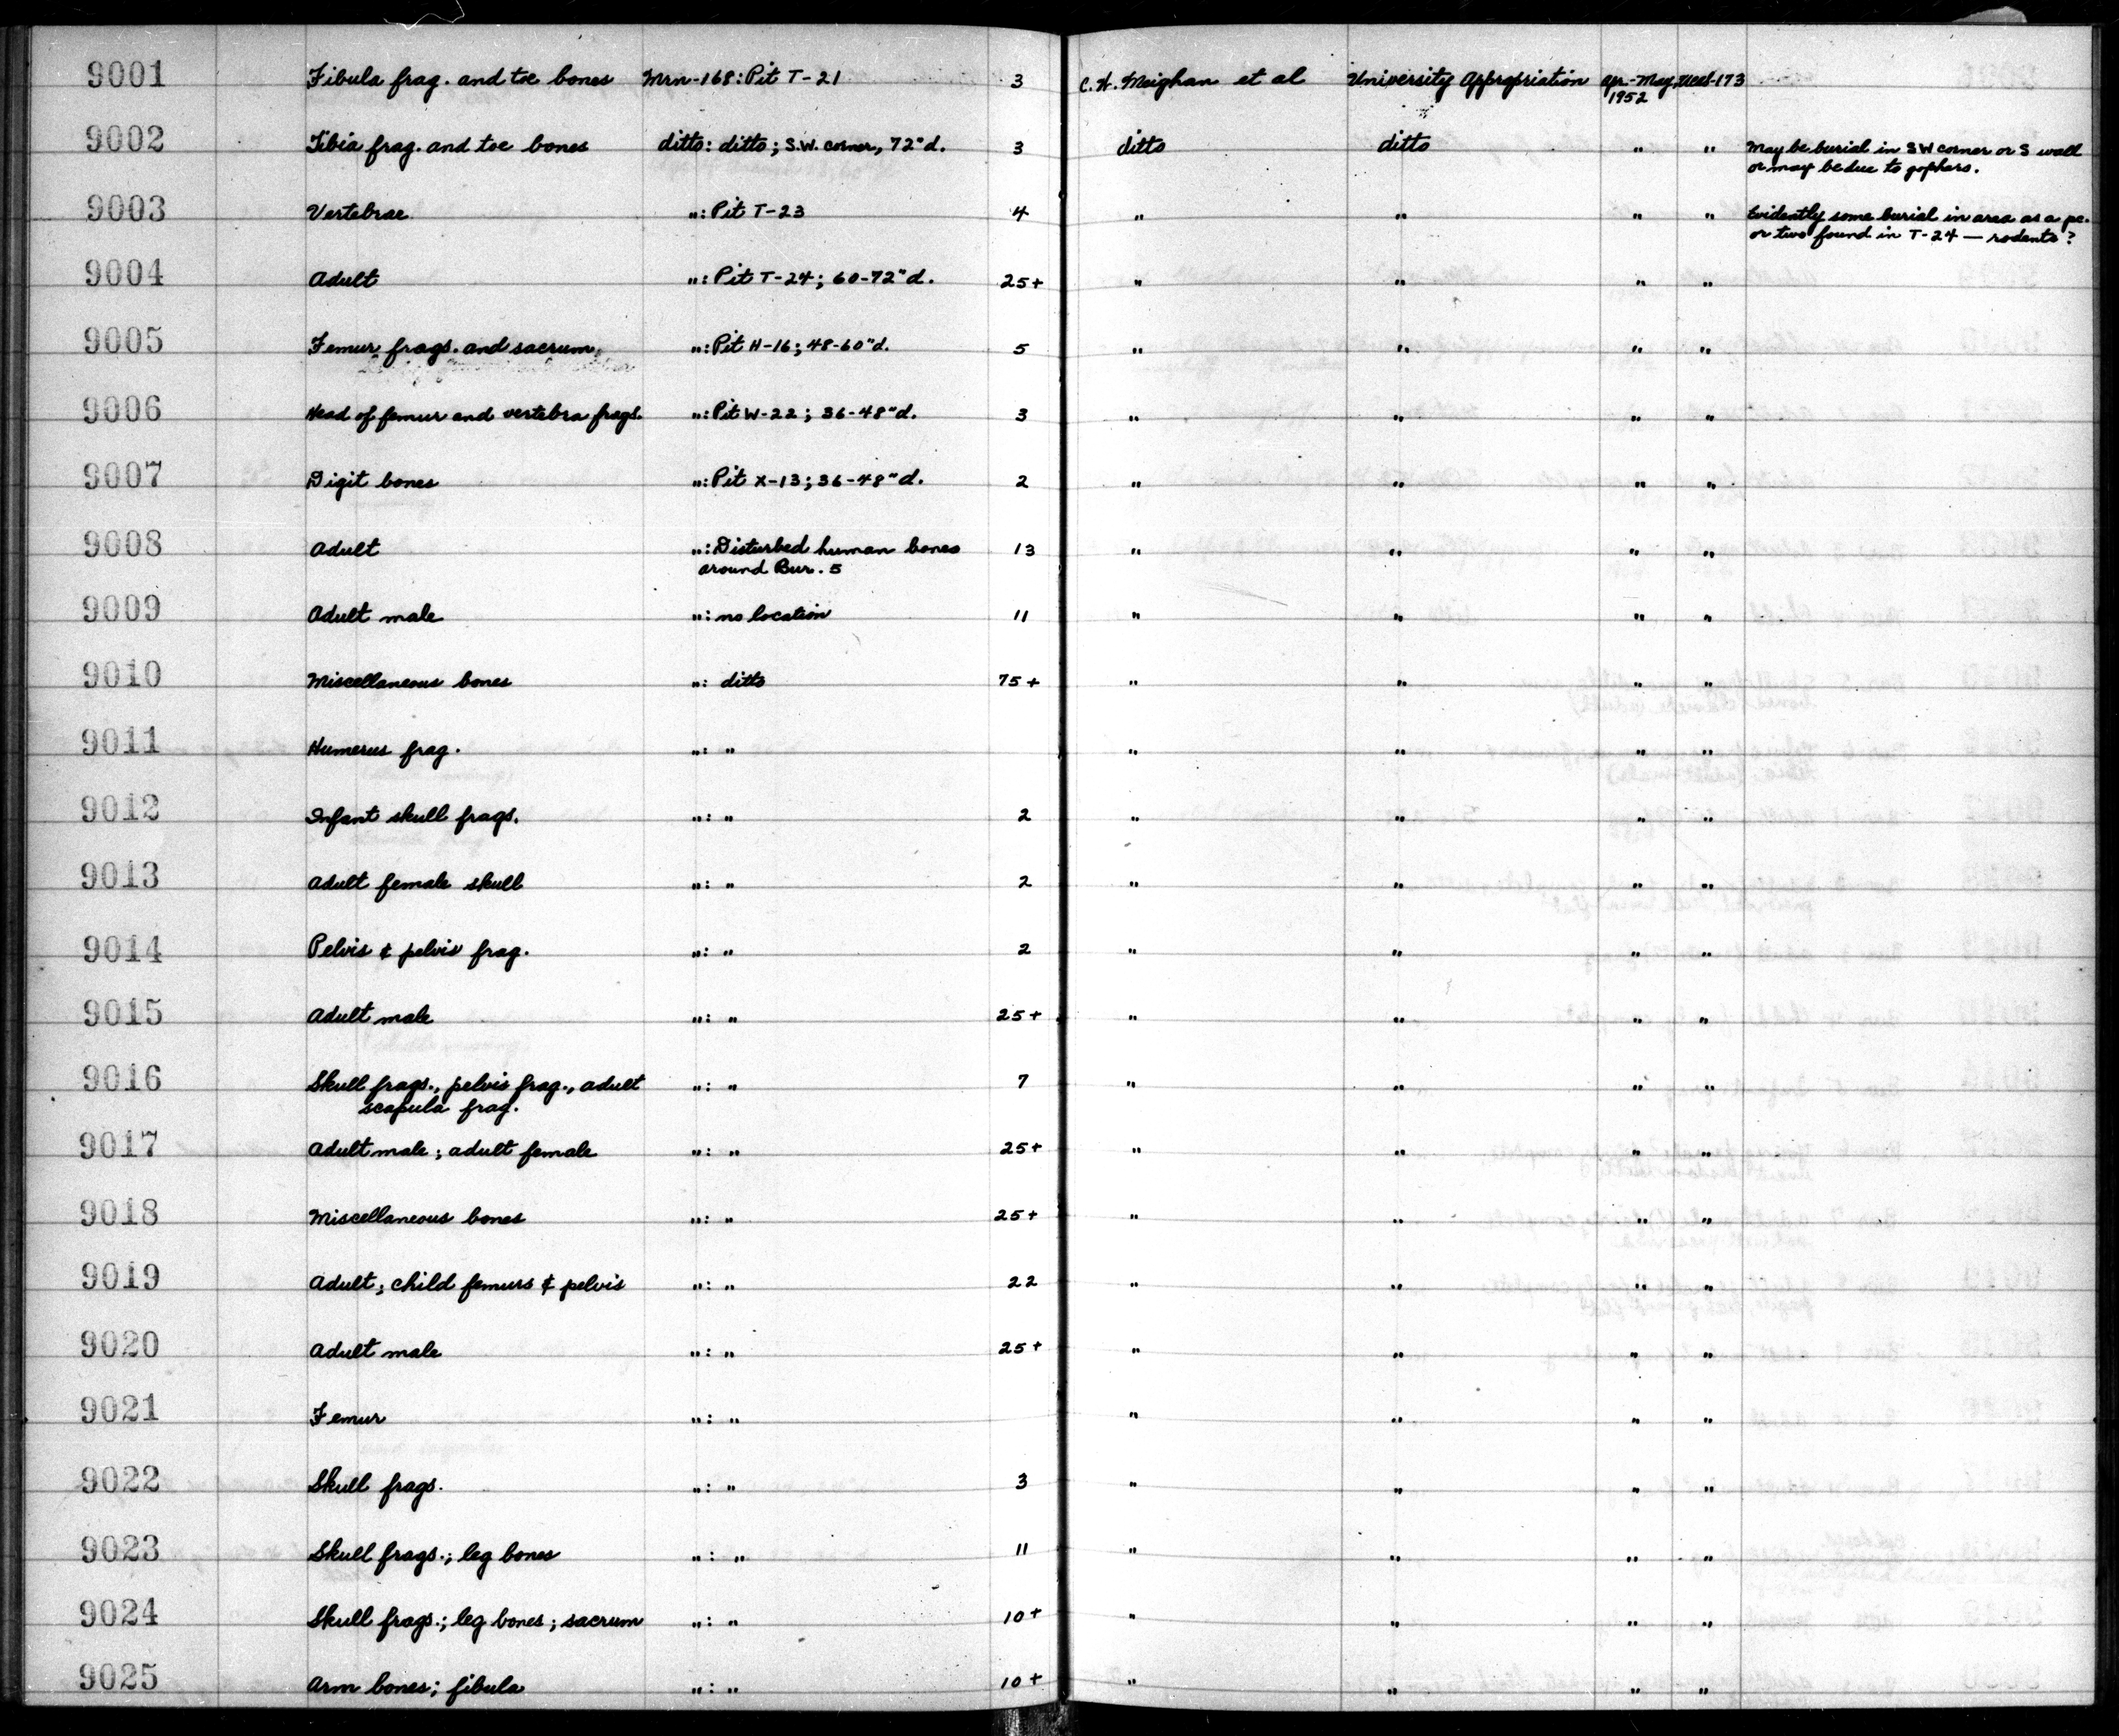 9001 Fibula frag. and toe bones Mrn-168: Pit T-21 3 C.W. Meighan et al University Appropriation Apr-May, 1952
9002 Tibia frag. and toe bones ditto: ditto; S.W. corner, 72"d. 3 ditto ditto " " May be burial in SW corner or S wall
or may be due to gophers.
9003 Vertebrae ": Pit T-23 4 " " " " Evidently some burial in area as a pc.
or two found in T-24 — rodents?
9004 Adult ": Pit T-24; 60-72"d. 25+ " " " "
9005 Femur frags. and sacrum ": Pit H-16; 48-60"d. 5 " " " "
9006 Head of femur and vertebra frags. ": Pit W-22; 36-48"d. 3 " " " "
9007 Digit bones ": Pit X-13; 36-48"d. 2 " " " "
9008 Adult ": Disturbed human bones 13 " " " "
around Bur. 5
9009 Adult male ": no location 11 " " " "
9010 Miscellaneous bones ": ditto 75+ " " " "
9011 Humerus frag. ": " " " " "
9012 Infant skull frags. ": " 2 " " " "
9013 Adult female skull ": " 2 " " " "
9014 Pelvis & pelvis frag. ": " 2 " " " "
9015 Adult male ": " 25+ " " " "
9016 Skull frags., pelvis frag., adult ": " 7 " " " "
scapula frag.
9017 Adult male; adult female ": " 25+ " " " "
9018 Miscellaneous bones ": " 25+ " " " "
9019 Adult; child femurs & pelvis ": " 22 " " " "
9020 Adult male ": " 25+ " " " "
9021 Femur ": " " " " "
9022 Skull frags. ": " 3 " " " "
9023 Skull frags.; leg bones ": " 11 " " " "
9024 Skull frags.; leg bones; sacrum ": " 10+ " " " "
9025 Arm bones; fibula ": " 10+ " " " "